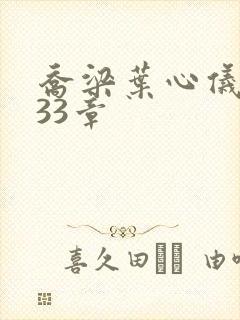 乔梁葉心儀
33章
喜久田 由